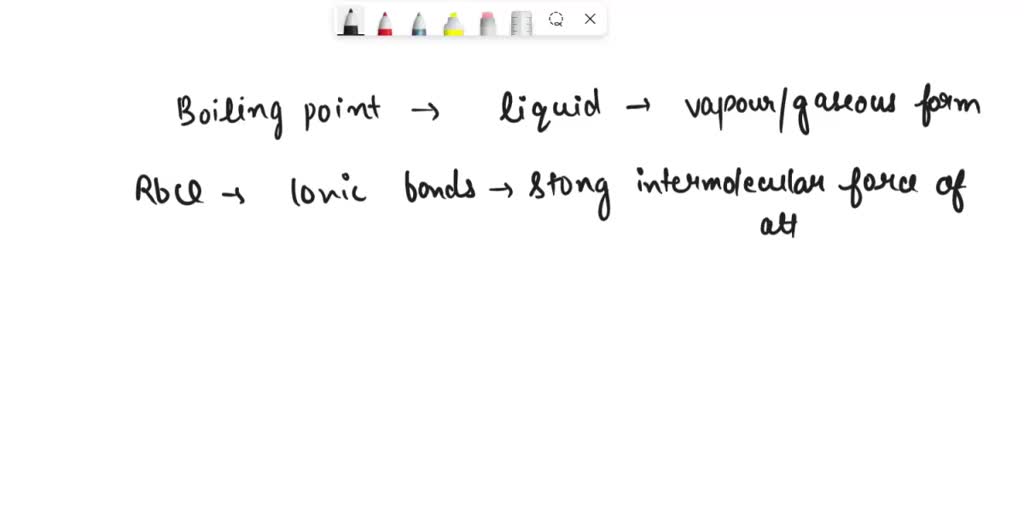 Boiling point → liquid → vapour/gaseous form
RbCl → Ionic bonds → Stong intermolecular force of
att